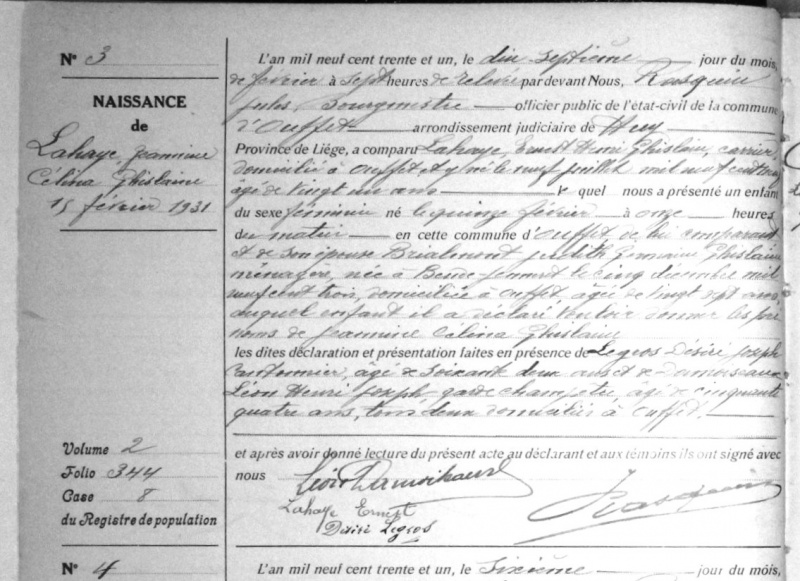 N° 3
NAISSANCE
de
Lahaye, Jeannine
Célina Ghislaine
15 février 1931
L'an mil neuf cent trente et un, le dix septième jour du mois
de février à sept heures de relevée par devant Nous, Rasquin
Jules, Bourgmestre officier public de l'état-civil de la commune
d'Ouffet arrondissement judiciaire de Huy
Province de Liége, a comparu Lahaye Ernest Henri Ghislain, carrier,
domicilié à Ouffet, et y né le neuf juillet mil neuf cent
âgé de vingt un ans le quel nous a présenté un enfant
du sexe féminin né le quinze février à onze heures
du matin en cette commune d'Ouffet de lui comparant
et de son épouse Brialmont Judith Germaine Ghislaine
ménagère, née à Bende-Jenneret le cinq décembre mil
neuf cent trois, domiciliée à Ouffet, âgée de vingt sept ans,
auquel enfant il a déclaré vouloir donner les pré
noms de Jeannine Célina Ghislaine
les dites déclaration et présentation faites en présence de Legros Désiré Joseph
Cantonnier, âgé de soixante deux ans et de Damoiseaux
Léon Henri Joseph, garde champêtre, âgé de cinquante
quatre ans, tous deux domiciliés à Ouffet.
et après avoir donné lecture du présent acte au déclarant et aux témoins ils ont signé avec
nous
Léon Damoiseaux
Lahaye Ernest
Désiré Legros
Rasquin
Volume 2
Folio 344
Case 8
du Registre de population
N° 4
L'an mil neuf cent trente et un, le sixième jour du mois,